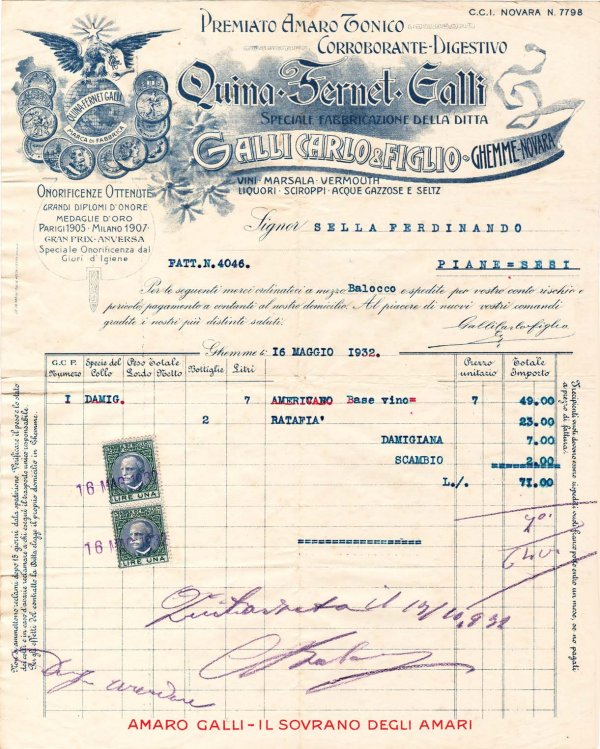 C.C.I. NOVARA N. 7798
PREMIATO AMARO TONICO
CORROBORANTE-DIGESTIVO
Quina-Fernet-Galli
SPECIALE FABBRICAZIONE DELLA DITTA
GALLI CARLO & FIGLIO - GHEMME-NOVARA
VINI - MARSALA - VERMOUTH
LIQUORI - SCIROPPI - ACQUE GAZZOSE E SELTZ
QUINA-FERNET GALLI
MARCA DI FABBRICA
ONORIFICENZE OTTENUTE
GRANDI DIPLOMI D'ONORE
MEDAGLIE D'ORO
PARIGI 1905 - MILANO 1907
GRAN PRIX - ANVERSA
Speciale Onorificenza dal
Giurì d'Igiene
Signor SELLA FERDINANDO
FATT.N.4046. PIANE=SESI
Per le seguenti merci ordinateci a mezzo Balocco e spedite per vostro conto rischio e
pericolo, pagamento a contanti al nostro domicilio. Al piacere di nuovi vostri comandi
gradite i nostri più distinti saluti.
Galli Carlo & figlio
Ghemme li 16 MAGGIO 1932.
G.C.P. Numero Specie del Collo Peso Totale Lordo Netto Bottiglie Litri Prezzo unitario Totale Importo
I DAMIG. 7 AMERICANO Base vino= 7 49.00
2 RATAFIA' 23.00
DAMIGIANA 7.00
SCAMBIO 2.00
L./. 71.00
LIRE UNA
16 MAG
LIRE UNA
16 M
Non si ammettono reclami dopo 15 giorni dalla spedizione. Verificare il peso e lo stato
dei colli e in caso d'avarie reclamare a chi eseguì il trasporto unico responsabile.
Per gli effetti del contratto la Ditta elegge il proprio domicilio in Ghemme.
I recipienti vuoti dovranno essere impediti
a prezzo di fattura.
AMARO GALLI - IL SOVRANO DEGLI AMARI